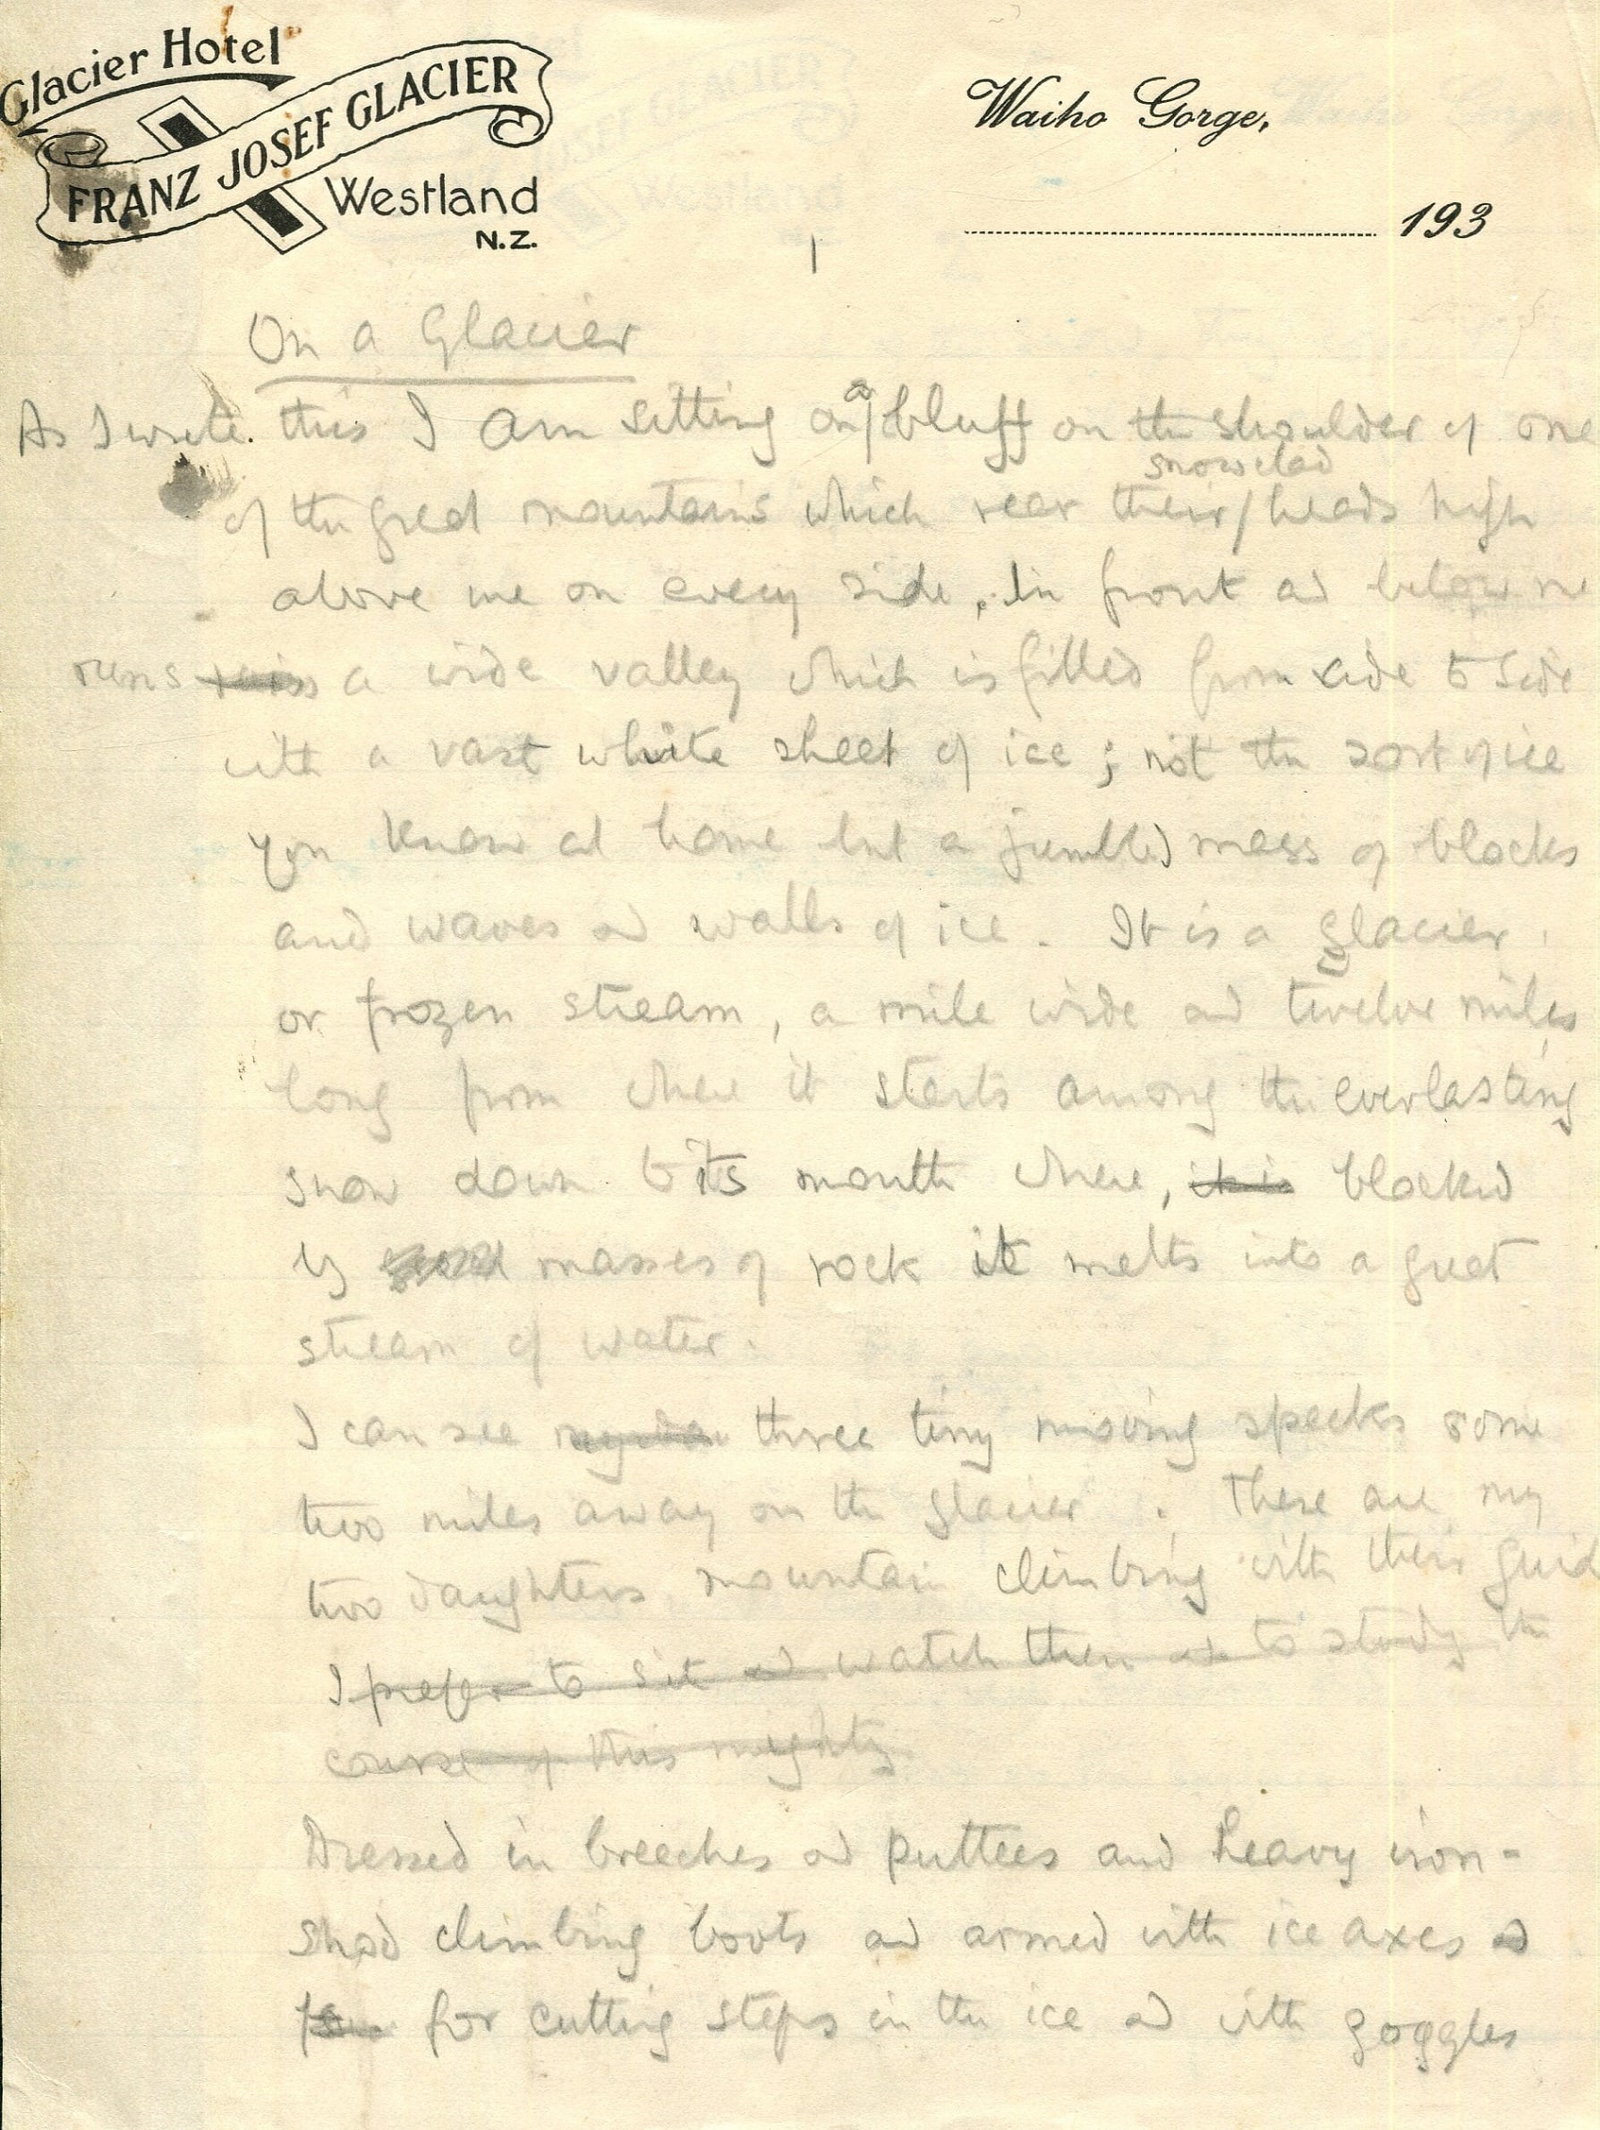 Glacier Hotel
FRANZ JOSEF GLACIER
Westland
N.Z.
Waiho Gorge,
193
1
On a Glacier
As I write this I am sitting on a bluff on the shoulder of one
of the great mountains which rear their snowclad heads high
above me on every side. In front ad below me
runs a wide valley which is filled from side to side
with a vast white sheet of ice; not the sort of ice
you know at home but a jumbled mass of blocks
and waves ad walls of ice. It is a glacier
or frozen stream, a mile wide ad twelve miles
long from where it starts among the everlasting
snow down to its mouth where, it is blocked
by masses of rock it melts into a great
stream of water.
I can see three tiny moving specks some
two miles away on the glacier. These are my
two daughters mountain climbing with their guid
I prefer to sit ad watch them ad to study the
course of this mighty
Dressed in breeches ad puttees and heavy iron-
shod climbing boots ad armed with ice axes ad
for cutting steps in the ice ad with goggles